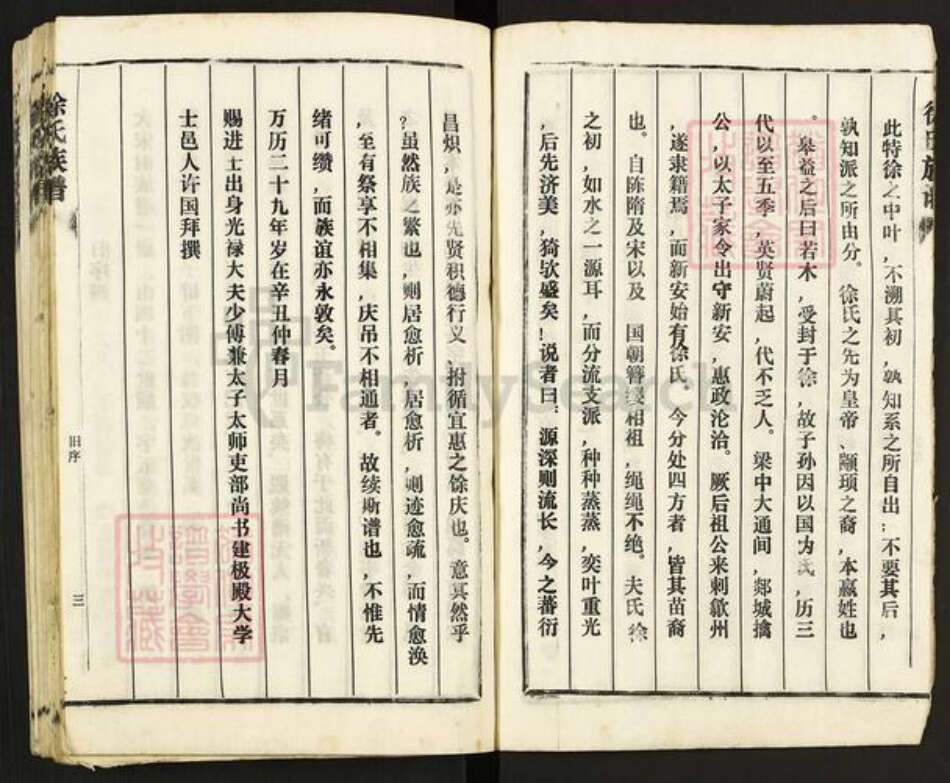 此特徐之中叶，不溯其初，孰知系之所自出；不要其后，
孰知派之所由分。徐氏之先为皇帝、颛顼之裔，本嬴姓也
。皋益之后曰若木，受封于徐，故子孙因以国为氏，历三
代以至五季，英贤蔚起，代不乏人。梁中大通间，郯城擒
公，以太子家令出守新安，惠政沦洽。厥后祖公来刺歙州
，遂隶籍焉，而新安始有徐氏。今分处四方者，皆其苗裔
也。自陈隋及宋以及　国朝簪缨相祖，绳绳不绝。夫氏徐
之初，如水之一源耳，而分流支派，种种蒸蒸，奕叶重光
，后先济美，猗欤盛矣！说者曰：源深则流长，今之蕃衍
昌炽，是亦先贤积德行义，拊循宜惠之馀庆也。意其然乎
？虽然族之繁也，则居愈析，居愈析，则迹愈疏，而情愈涣
，至有祭享不相集，庆吊不相通者。故续斯谱也，不惟先
绪可缵，而族谊亦永敦矣。
万历二十九年岁在辛丑仲春月
赐进士出身光禄大夫少傅兼太子太师吏部尚书建极殿大学
士邑人许国拜撰
徐氏族谱
旧序
三
FamilySearch